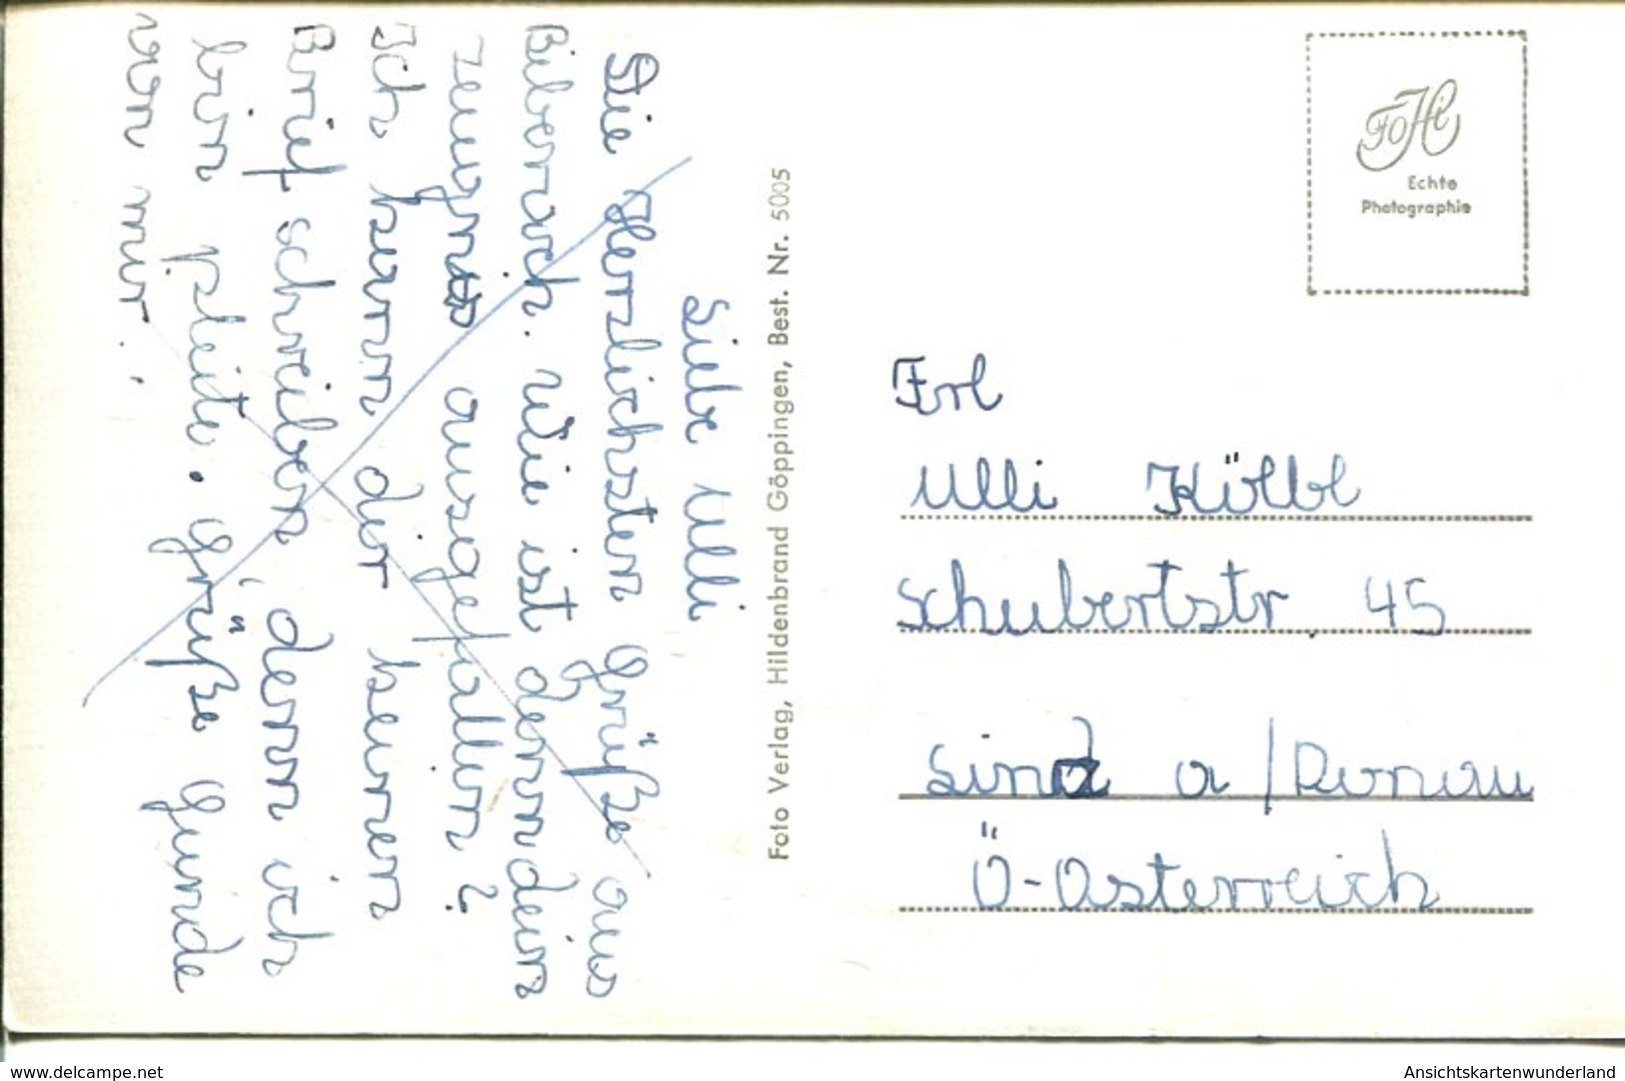 Liebe Ulli
Die Herzlichsten Grüße aus
Biberach. Wie ist denn dein
zeugnis ausgefallen?
Ich kann dir keinen
Brief schreiben, denn ich
bin pleite. Grüße Gunde
von mir.
Foto Verlag, Hildenbrand Göppingen, Best. Nr. 5005
FOHi
Echte
Photographie
Frl
Ulli Kölbl
Schubertstr. 45
Linz a/Donau
Ö-Osterreich
www.delcampe.net
Ansichtskartenwunderland